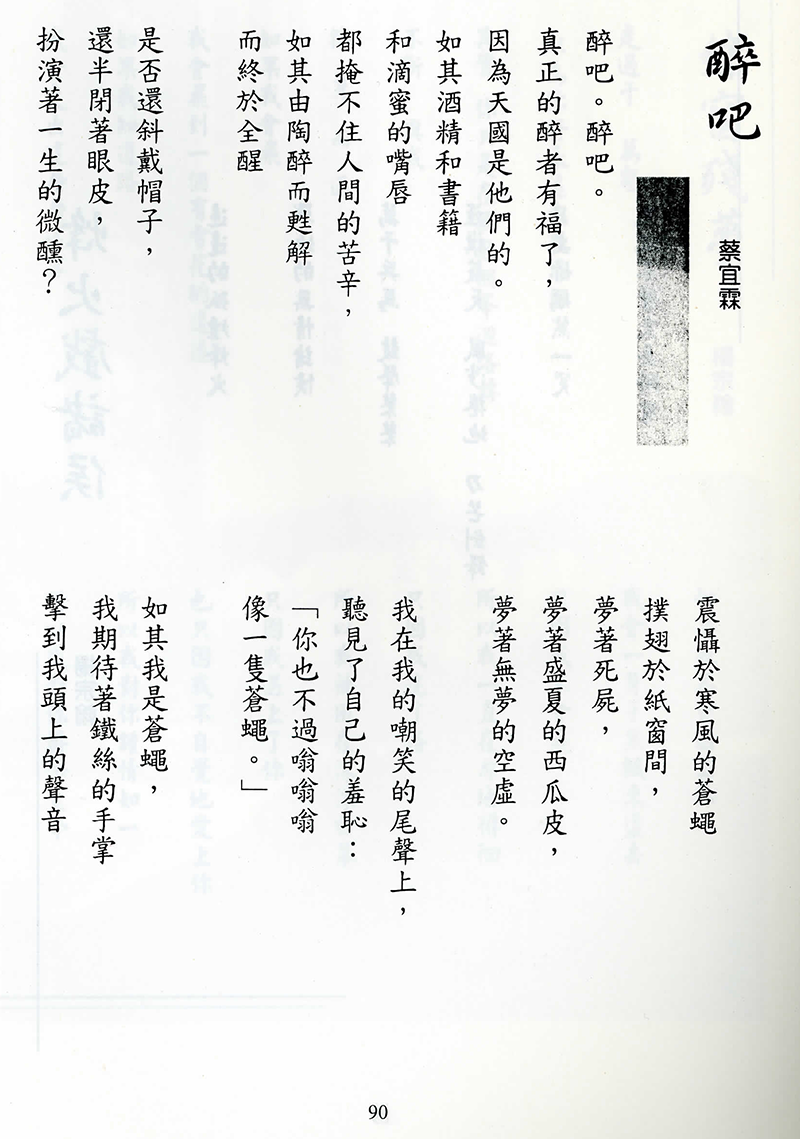 醉吧
蔡宜霖
醉吧。醉吧。
真正的醉者有福了，
因為天國是他們的。
如其酒精和書籍
和滴蜜的嘴唇
都掩不住人間的苦辛，
如其由陶醉而甦解
而終於全醒
是否還斜戴帽子，
還半閉著眼皮，
扮演著一生的微醺？
震懾於寒風的蒼蠅
撲翅於紙窗間，
夢著死屍，
夢著盛夏的西瓜皮，
夢著無夢的空虛。
我在我的嘲笑的尾聲上，
聽見了自己的羞恥：
「你也不過嗡嗡嗡
像一隻蒼蠅。」
如其我是蒼蠅，
我期待著鐵絲的手掌
擊到我頭上的聲音
90